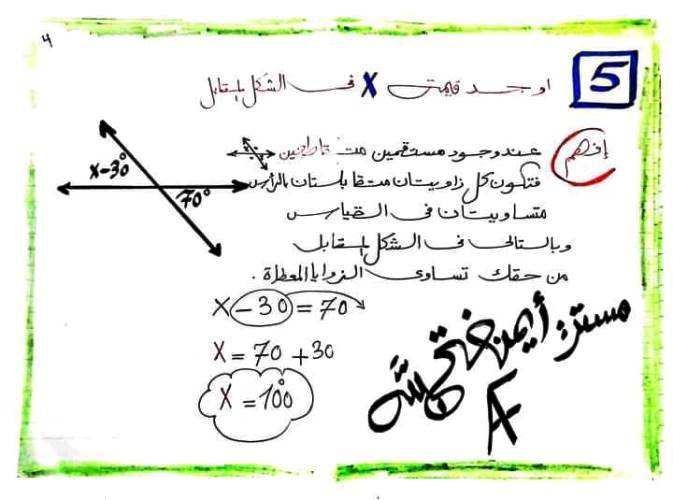 4
5
اوجد قيمة X فى الشكل المقابل
إفهم
عند وجود مستقيمين متقاطعين
فتكون كل زاويتان متقابلستان بالرأس
متساويتان فى القياس
وبالتالى فى الشكل المقابل
من حقك تساوى الزوايا المعطاة .
x-30°
70°
X - 30 = 70
X = 70 + 30
X = 100°
مستر: أيمن فتح الله
AF